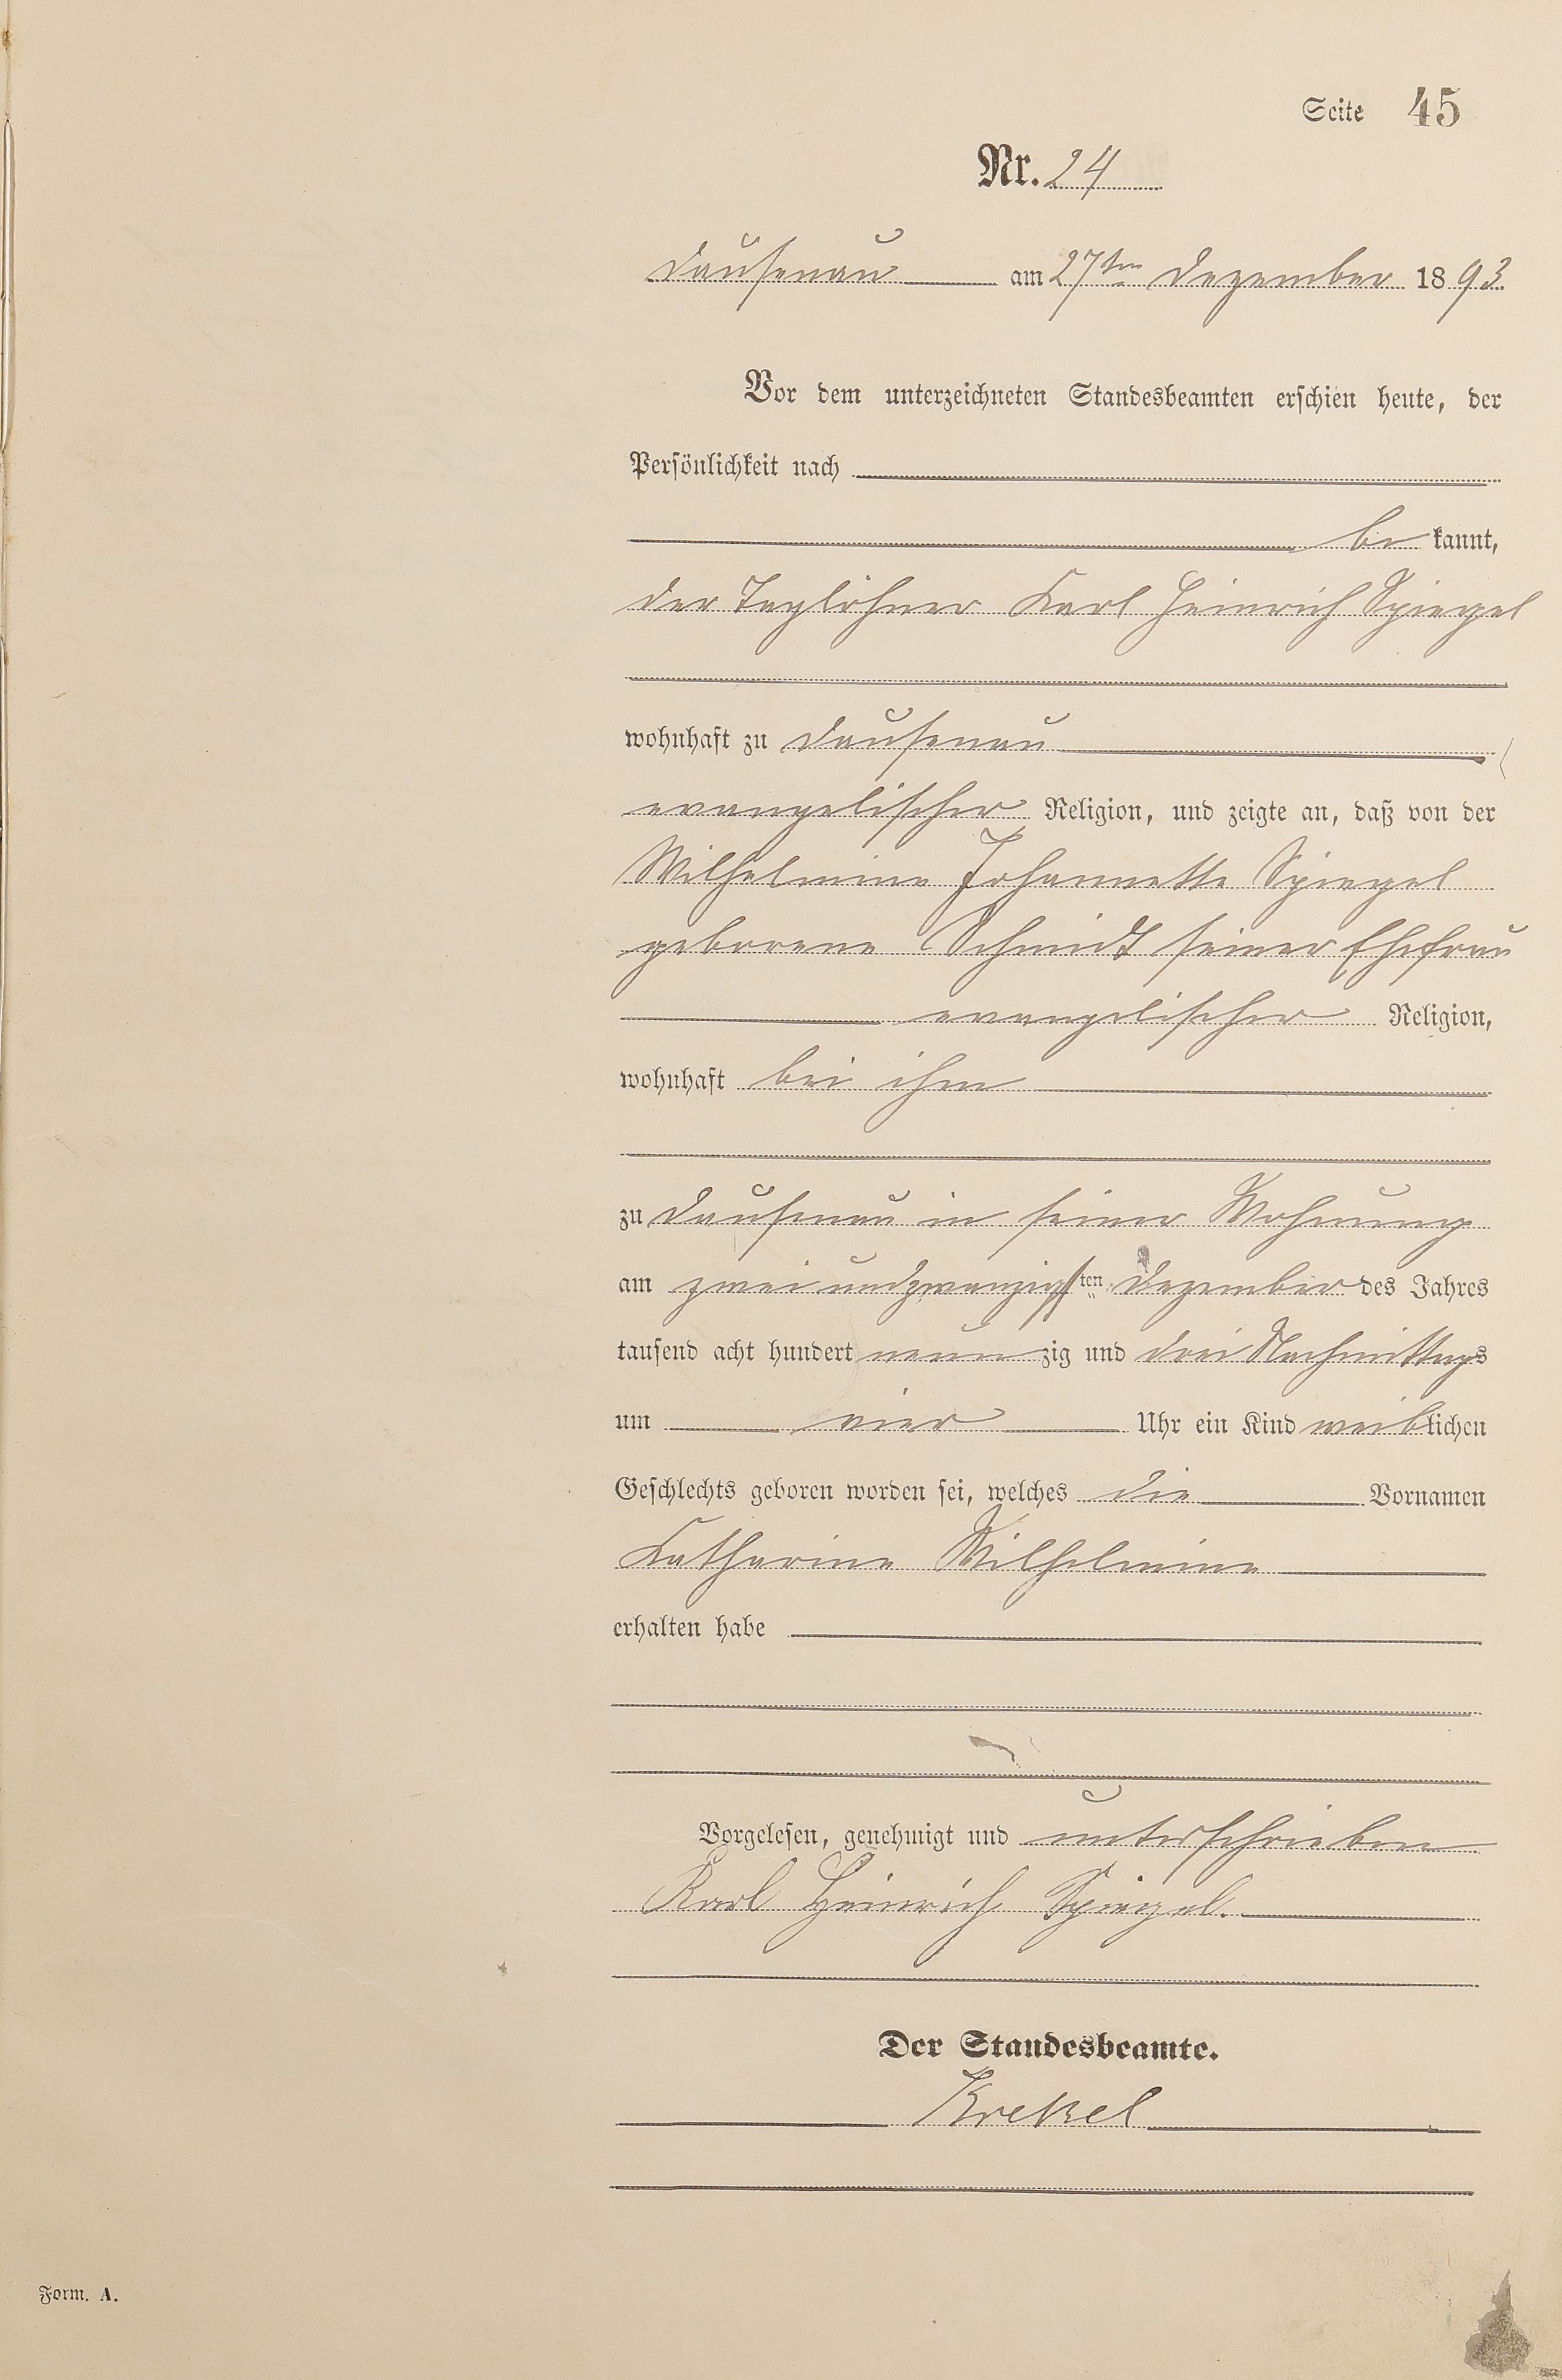 Seite 45
Nr. 24
Dausenau am 27ten Dezember 1893.
Vor dem unterzeichneten Standesbeamten erschien heute, der
Persönlichkeit nach
be kannt,
der Taglöhner Karl Heinrich Spiegel
wohnhaft zu Dausenau
evangelischer Religion, und zeigte an, daß von der
Wilhelmine Johannette Spiegel
geborene Schmidt seiner Ehefrau
evangelischer Religion,
wohnhaft bei ihm
zu Dausenau in seiner Wohnung
am zwei und zwanzigsten Dezember des Jahres
tausend acht hundert neun zig und drei Nachmittags
um vier Uhr ein Kind weiblichen
Geschlechts geboren worden sei, welches die Vornamen
Katharine Wilhelmine
erhalten habe
Vorgelesen, genehmigt und unterschrieben
Karl Heinrich Spiegel.
Der Standesbeamte.
Krekel
Form. A.